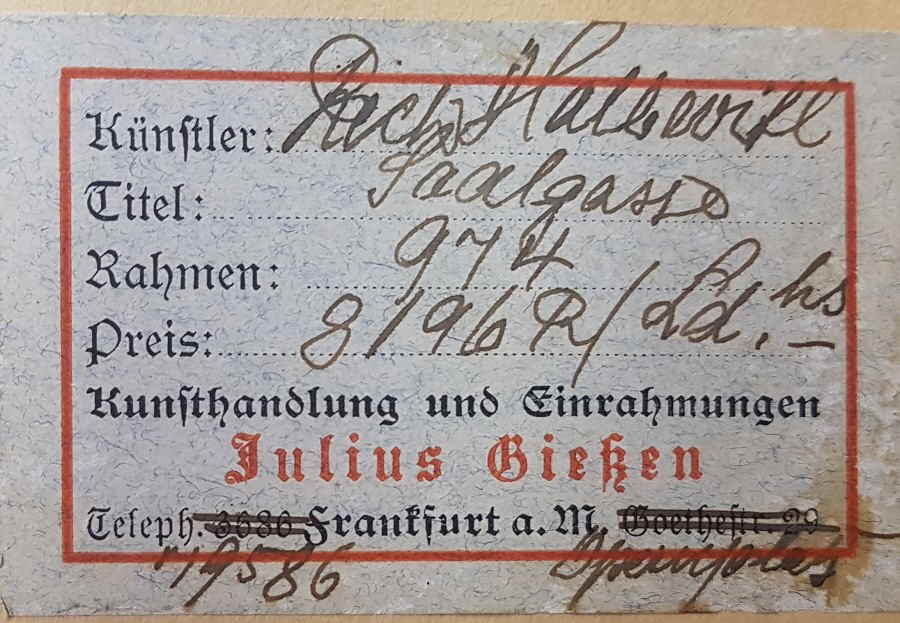 Künstler: Rich. Halbewill
Titel: Saalgasse
Rahmen: 974
Preis: 8196 R/Ld. hs
Kunsthandlung und Einrahmungen
Julius Gießen
Teleph. 3686 Frankfurt a. M. Goethestr. 29
Opernplatz